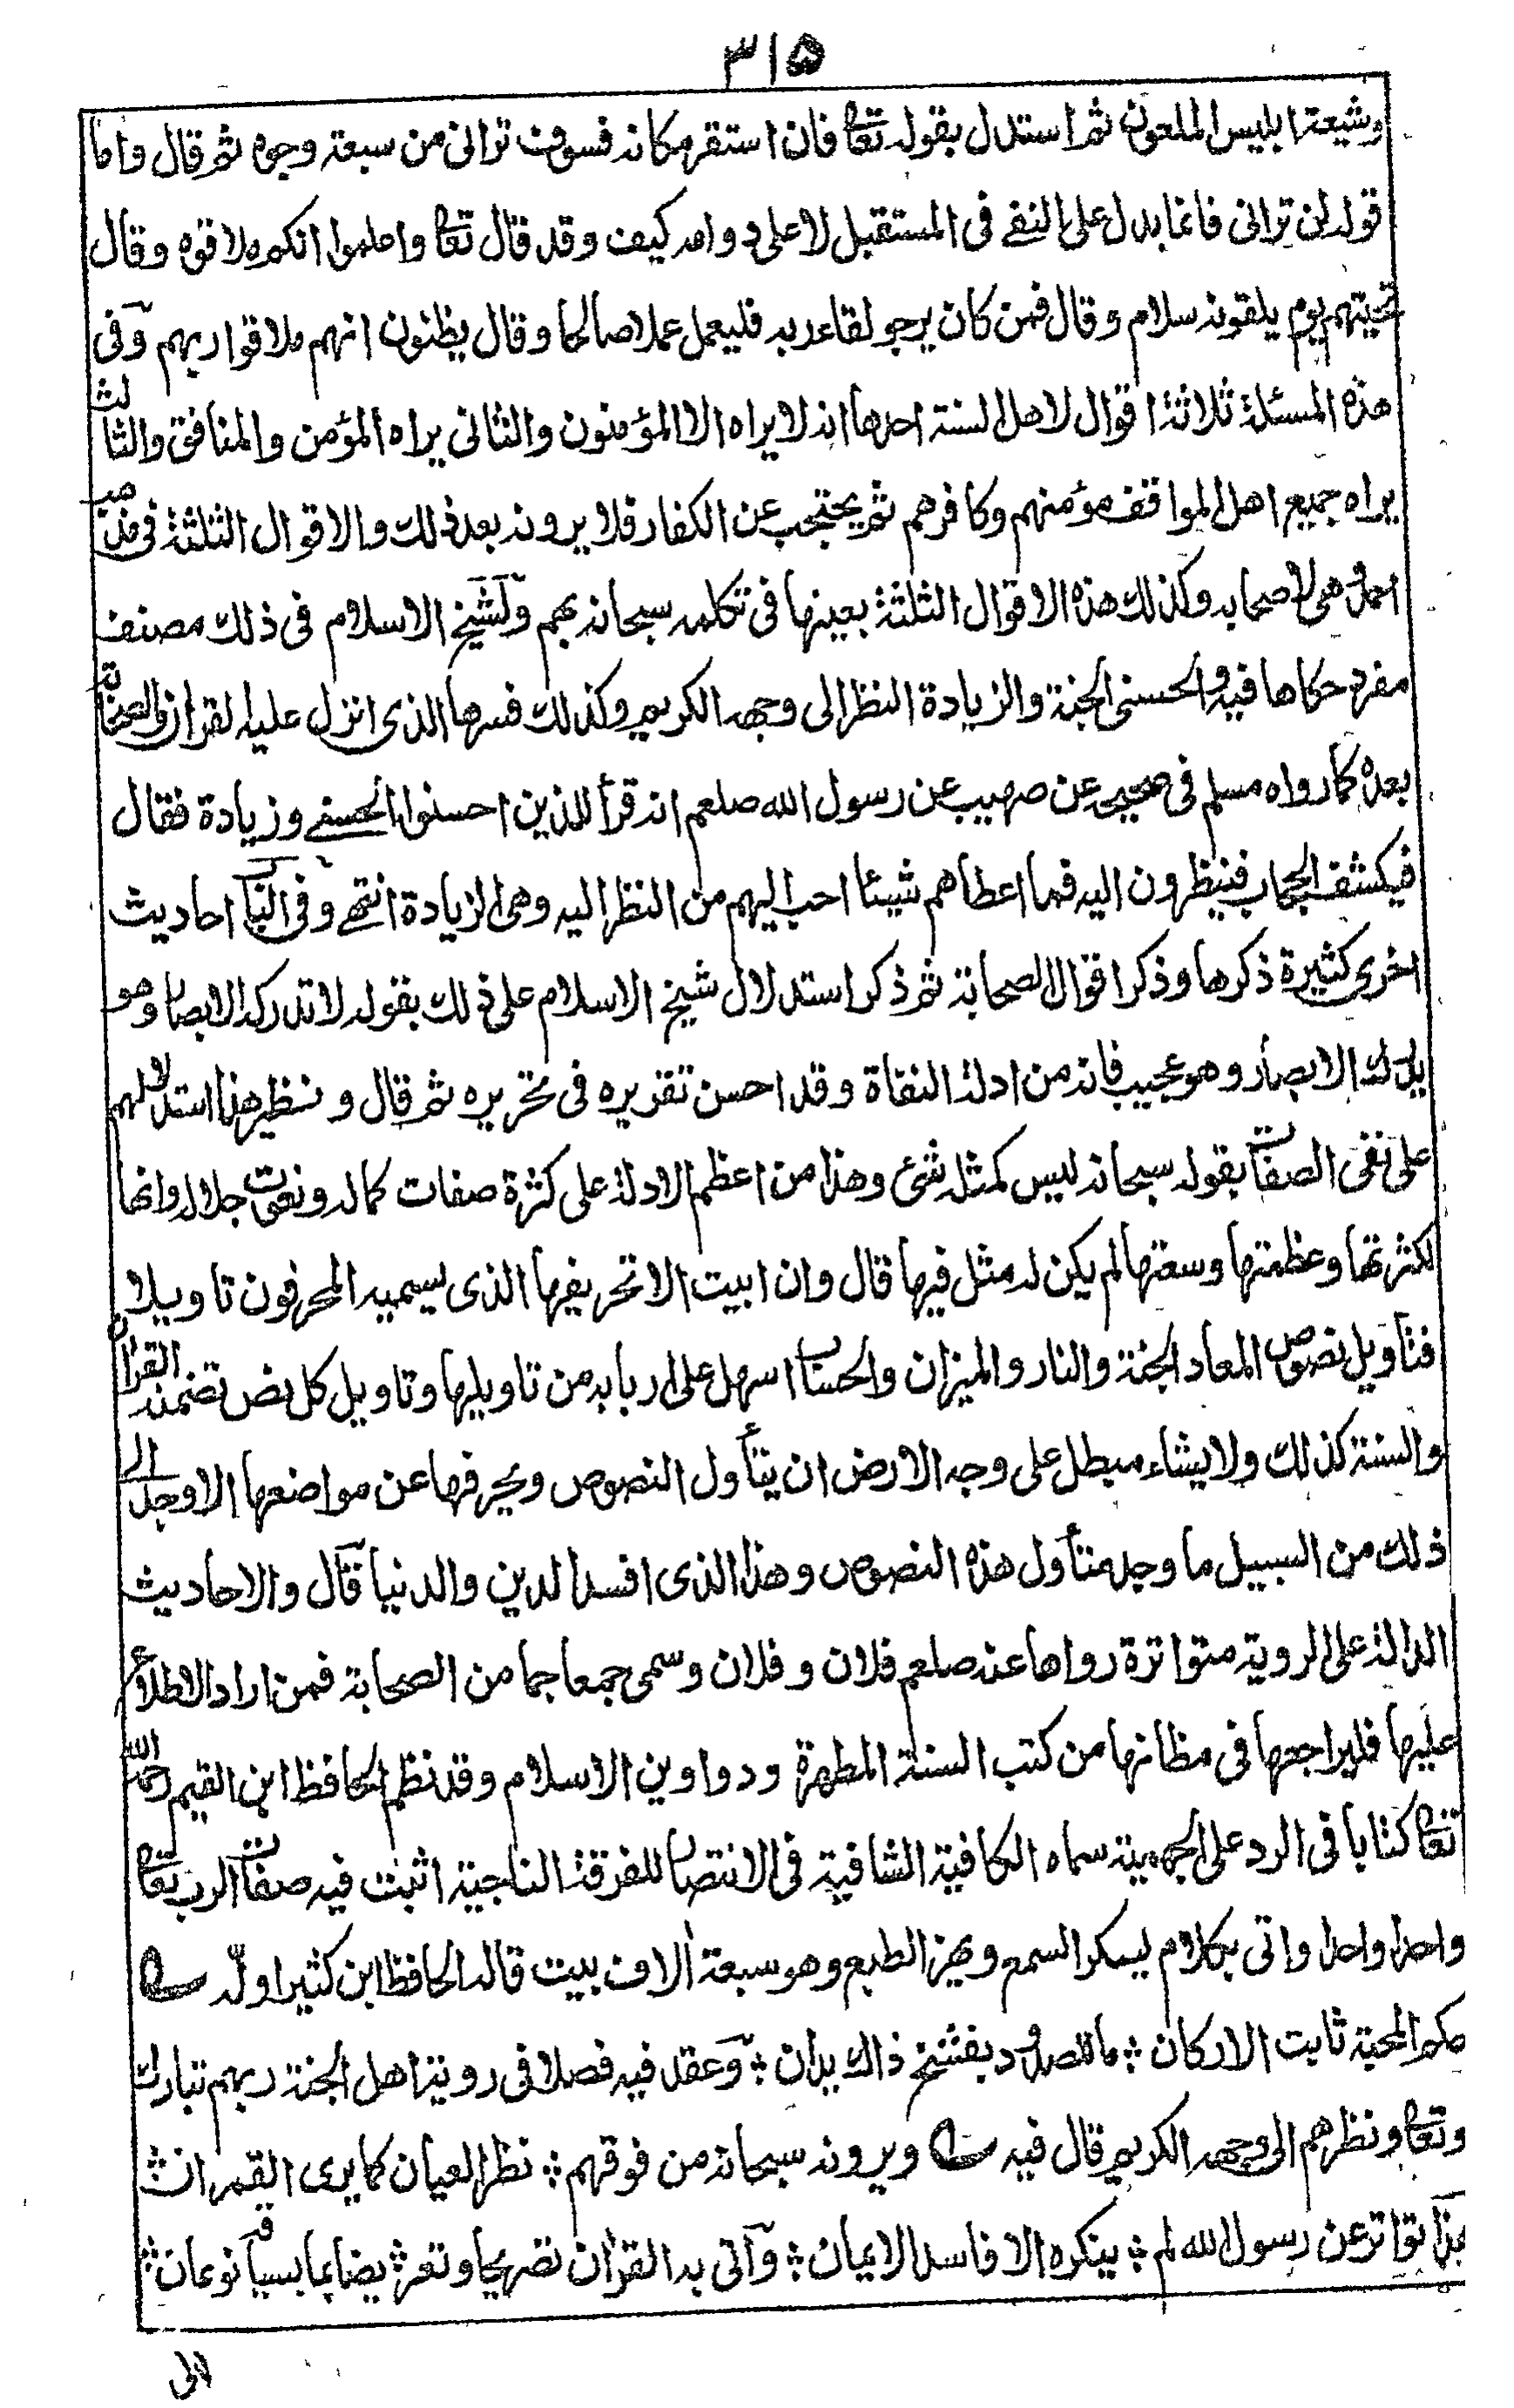 ٣١٥
وشيعة ابليس الملعون ثم استدل بقوله تعا فان استقر مكانه فسوف ترانى من سبعة وجوه ثم قال واما
قوله لن ترانى فانما يدل على النفے فى المستقبل لا على دوامه كيف وقد قال تعا واعلموا انكم ملاقوه وقال
تحيتهم يوم يلقونه سلام وقال فمن كان يرجو لقاء ربه فليعمل عملا صالحا وقال يظنون انهم ملاقوا ربهم وفى
هذه المسئلة ثلاثة اقوال لاهل السنة احدها انه لا يراه الا المؤمنون والثانى يراه المؤمن والمنافق والثالث
يراه جميع اهل المواقف مؤمنهم وكافرهم ثم يحتجب عن الكفار فلا يرونه بعد ذلك والاقوال الثلثة فى مذهب
احمد وهى لاصحابه وكذلك هذه الاقوال الثلثة بعينها فى تكلمه سبحانه بهم ولشيخ الاسلام فى ذلك مصنف
مفرد حكاها فيه والحسنى الجنة والزيادة النظر الى وجهه الكريم وكذلك فسرها الذى انزل عليه القران والصحابة
بعده كما رواه مسلم فى صحيحه عن صهيب عن رسول الله صلعم انه قرأ للذين احسنوا الحسنے وزيادة فقال
فيكشف الحجاب فينظرون اليه فما اعطاهم شيئا احب اليهم من النظر اليه وهى الزيادة انتهے وفى الباب احاديث
اخرى كثيرة ذكرها وذكر اقوال الصحابة ثم ذكر استدلال شيخ الاسلام على ذلك بقوله لا تدركه الابصار وهو
يدرك الابصار وهو عجيب فانه من ادلة النفاة وقد احسن تقريره فى تحريره ثم قال ونظير هذا استدلالهم
على نفى الصفات بقوله سبحانه ليس كمثله شئ وهذا من اعظم الادلة على كثرة صفات كماله ونعوت جلاله وانها
لكثرتها وعظمتها وسعتها لم يكن له مثل فيها قال وان ابيت الا تحريفها الذى يسميه المحرفون تاويلا
فتأويل نصوص المعاد الجنة والنار والميزان والحساب اسهل على اربابه من تاويلها وتاويل كل نص تضمنه القران
والسنة كذلك ولا يشاء مبطل على وجه الارض ان يتأول النصوص ويحرفها عن مواضعها الا وجد الى
ذلك من السبيل ما وجد متأول هذه النصوص وهذا الذى افسد الدين والدنيا قال والاحاديث
الدالة على الروية متواترة رواها عنه صلعم فلان وفلان وسمى جمعا جما من الصحابة فمن اراد الاطلاع
عليها فليراجعها فى مظانها من كتب السنة المطهرة ودواوين الاسلام وقد نظم الحافظ ابن القيم رحمه الله
تعا كتابا فى الرد على الجهمية سماه الكافية الشافية فى الانتصار للفرقة الناجية اثبت فيه صفات الرب تعا
واحدا واحدا واتى بكلام يسكر السمع ويهز الطبع وهو سبعة الاف بيت قاله الحافظ ابن كثير اوله
حكم المحبة ثابت الاركان ؞ ما للصدود بفسخ ذاك يدان ؞ وعقد فيه فصلا فى روية اهل الجنة ربهم تبارك
وتعا ونظرهم الى وجهه الكريم قال فيه ويرونه سبحانه من فوقهم ؞ نظر العيان كما يرى القمران ؞
هذا تواتر عن رسول الله لم ؞ ينكره الا فاسد الايمان ؞ واتى به القران تصريحا وتعر ؞ يضا بما بسياقه نوعان ؞